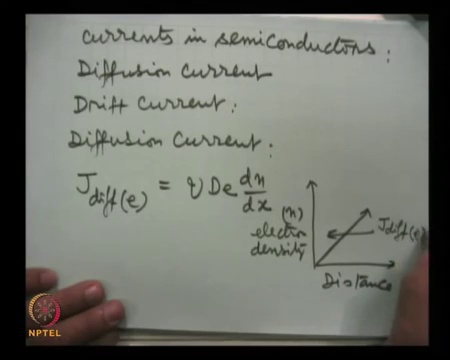 currents in semiconductors:
Diffusion current
Drift current:
Diffusion Current:
Jdiff(e) = q De dn/dx
(n)
electron
density
Jdiff(e)
Distance
NPTEL